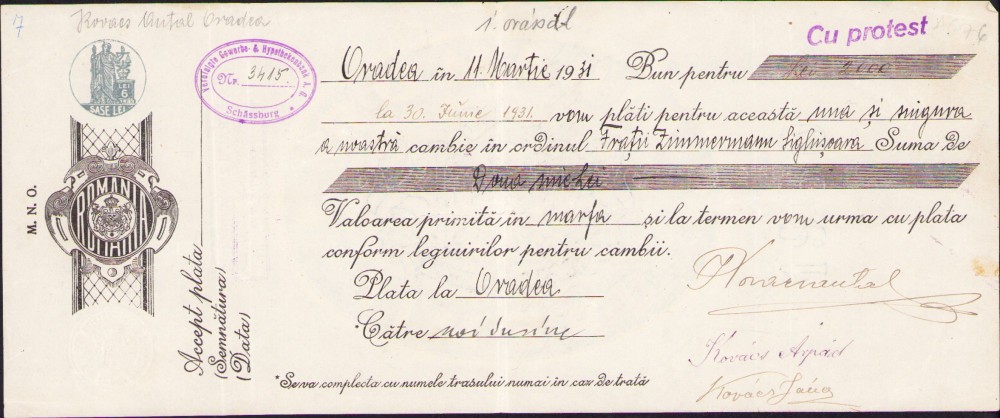 7 Kovacs Antal Oradea
1. orasdl
Cu protest
16
LEI 6
ȘASE LEI
Vereinigte Gewerbe- & Hypothekenbank A. G.
Nr. 3415.
Schässburg
M. N. O.
ROMANIA
ROMANIA
Accept plata
(Semnătura)
(Data)
Oradea în 11. Martie 1931 Bun pentru Lei 2000
la 30. Junie 1931. vom plăti pentru această una și singura
a noastră cambie în ordinul Frații Zimmermann Sighișoara Suma de
Doua mie Lei
Valoarea primită în marfa și la termen vom urma cu plata
conform legiuirilor pentru cambii.
Plata la Oradea
*Către noi
Kovacs Antal
Kovács Árpád
Kovács
*Se va complecta cu numele trasului numai în caz de trată